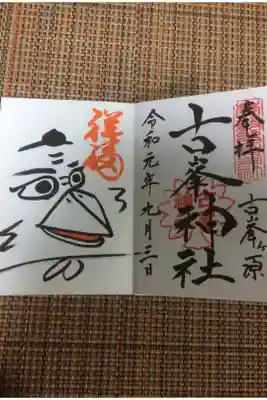 奉拝
古峯ヶ原
古峯神社
令和元年九月三日
祥福